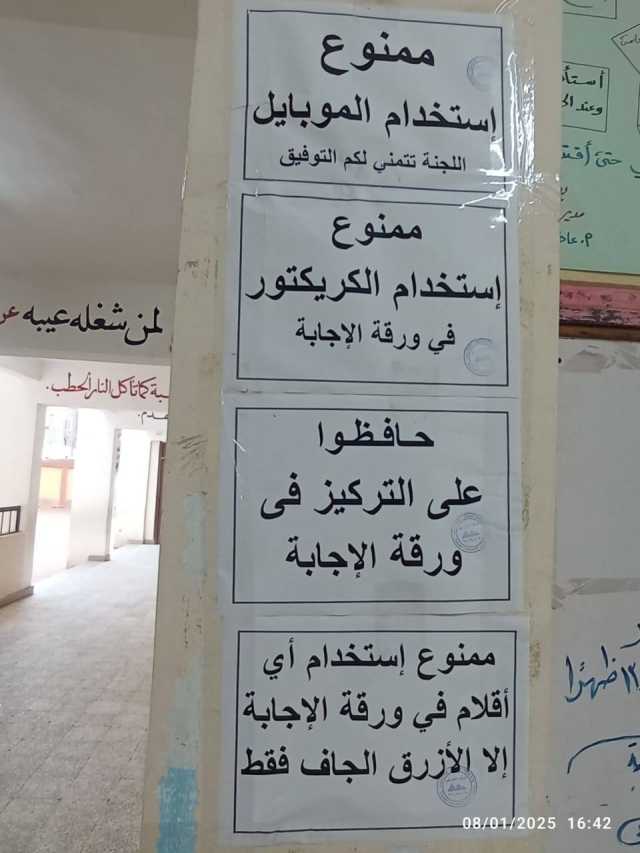 ممنوع
إستخدام الموبايل
اللجنة تتمني لكم التوفيق
ممنوع
إستخدام الكريكتور
في ورقة الإجابة
حـافـظـوا
على التركيز فى
ورقة الإجابة
ممنوع إستخدام أي
أقلام في ورقة الإجابة
إلا الأزرق الجاف فقط
لمن شغله عيبه
كما تأكل النار الحطب.
وعند
حتى
مدير
ظهرًا
08/01/2025 16:42